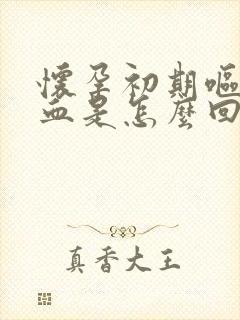 懷孕初期嘔
血是怎麼回
真香大王